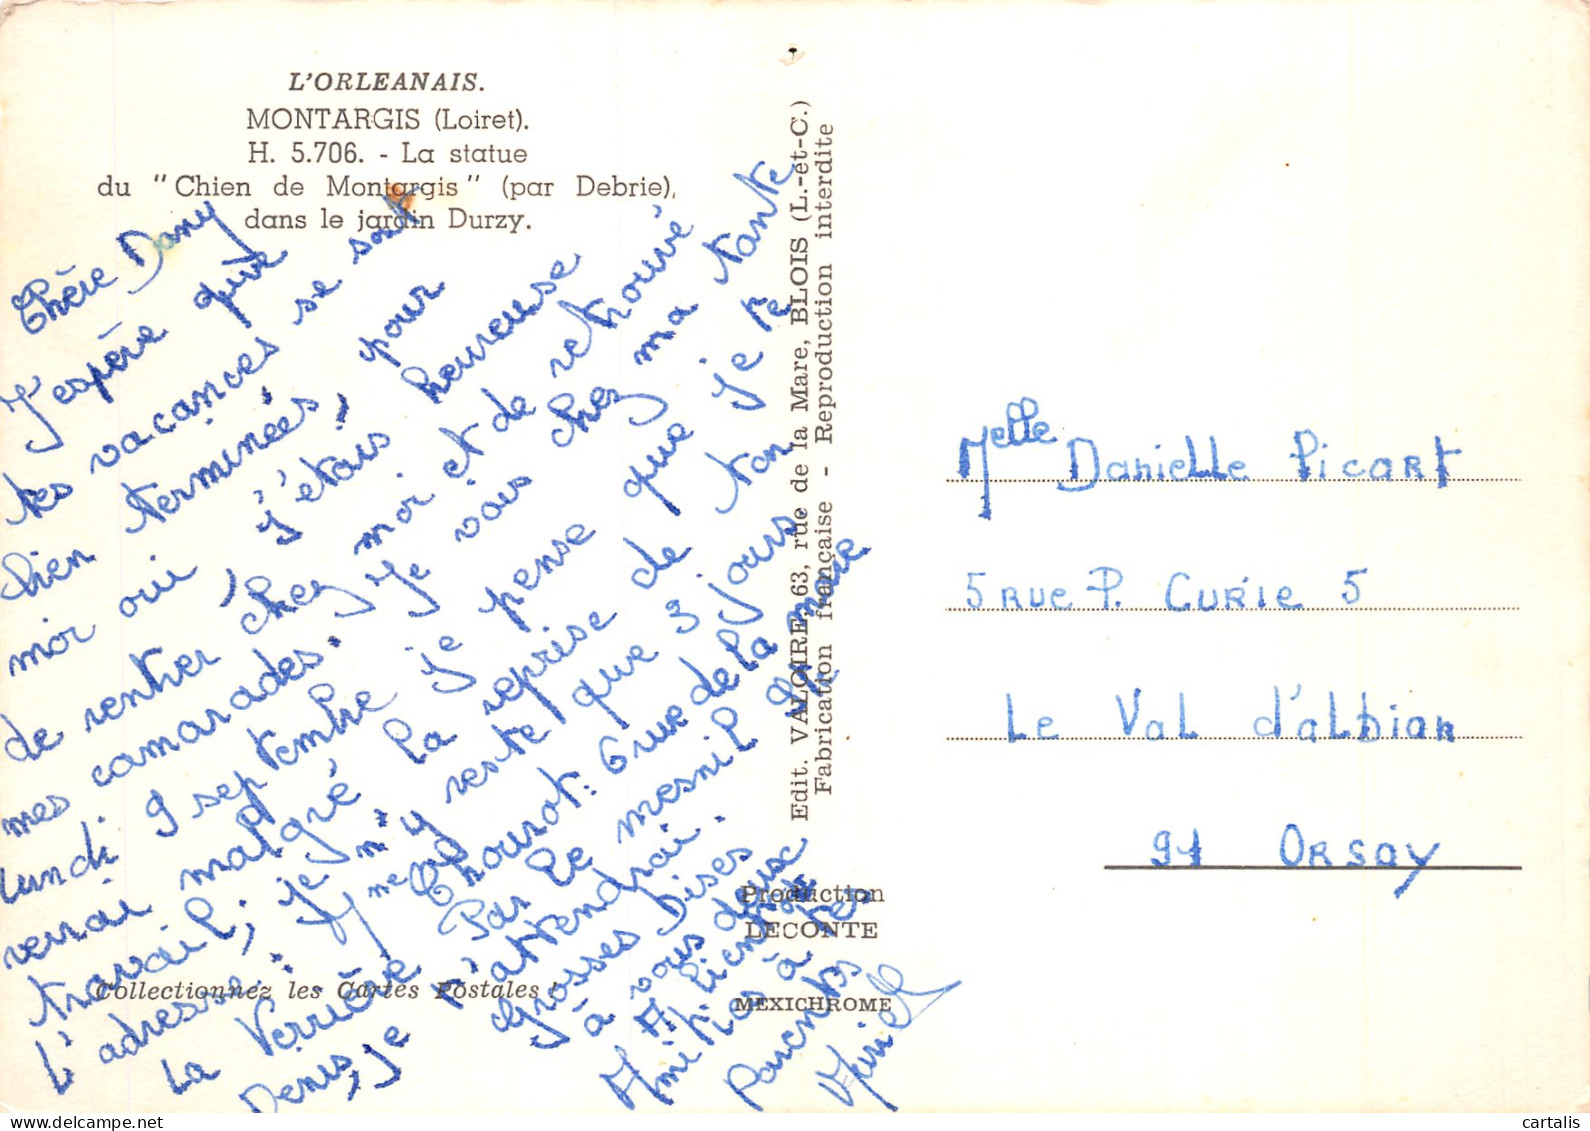 L'ORLEANAIS.
MONTARGIS (Loiret).
H. 5.706. - La statue
du "Chien de Montargis" (par Debrie),
dans le jardin Durzy.
Chère Dany
J'espère que
tes vacances se sont
bien terminées, pour
moi oui, j'étais heureuse
de rentrer chez moi et de retrouvé
mes camarades. Je vais chez ma tante
lundi 9 septembre je pense que je te
verrai malgré la reprise de ton
travail; je n'y reste que 3 jours.
L'adresse: Mme Chourot: 6 rue de la mare
La Verrière Par le mesnil St
Denis, je t'attendrai.
Grosses Bises
à vous deux
A bientôt
Amitiés à tes
Parents
Muriel
Collectionnez les Cartes Postales !
Edit. VALOIRE, 63, rue de la Mare, BLOIS (L.-et-C.)
Fabrication française - Reproduction interdite
Production
LECONTE
MEXICHROME
Melle Danielle Picart
5 RUE P. CURIE 5
Le Val d'albian
91 Orsay
cartalis
www.delcampe.net